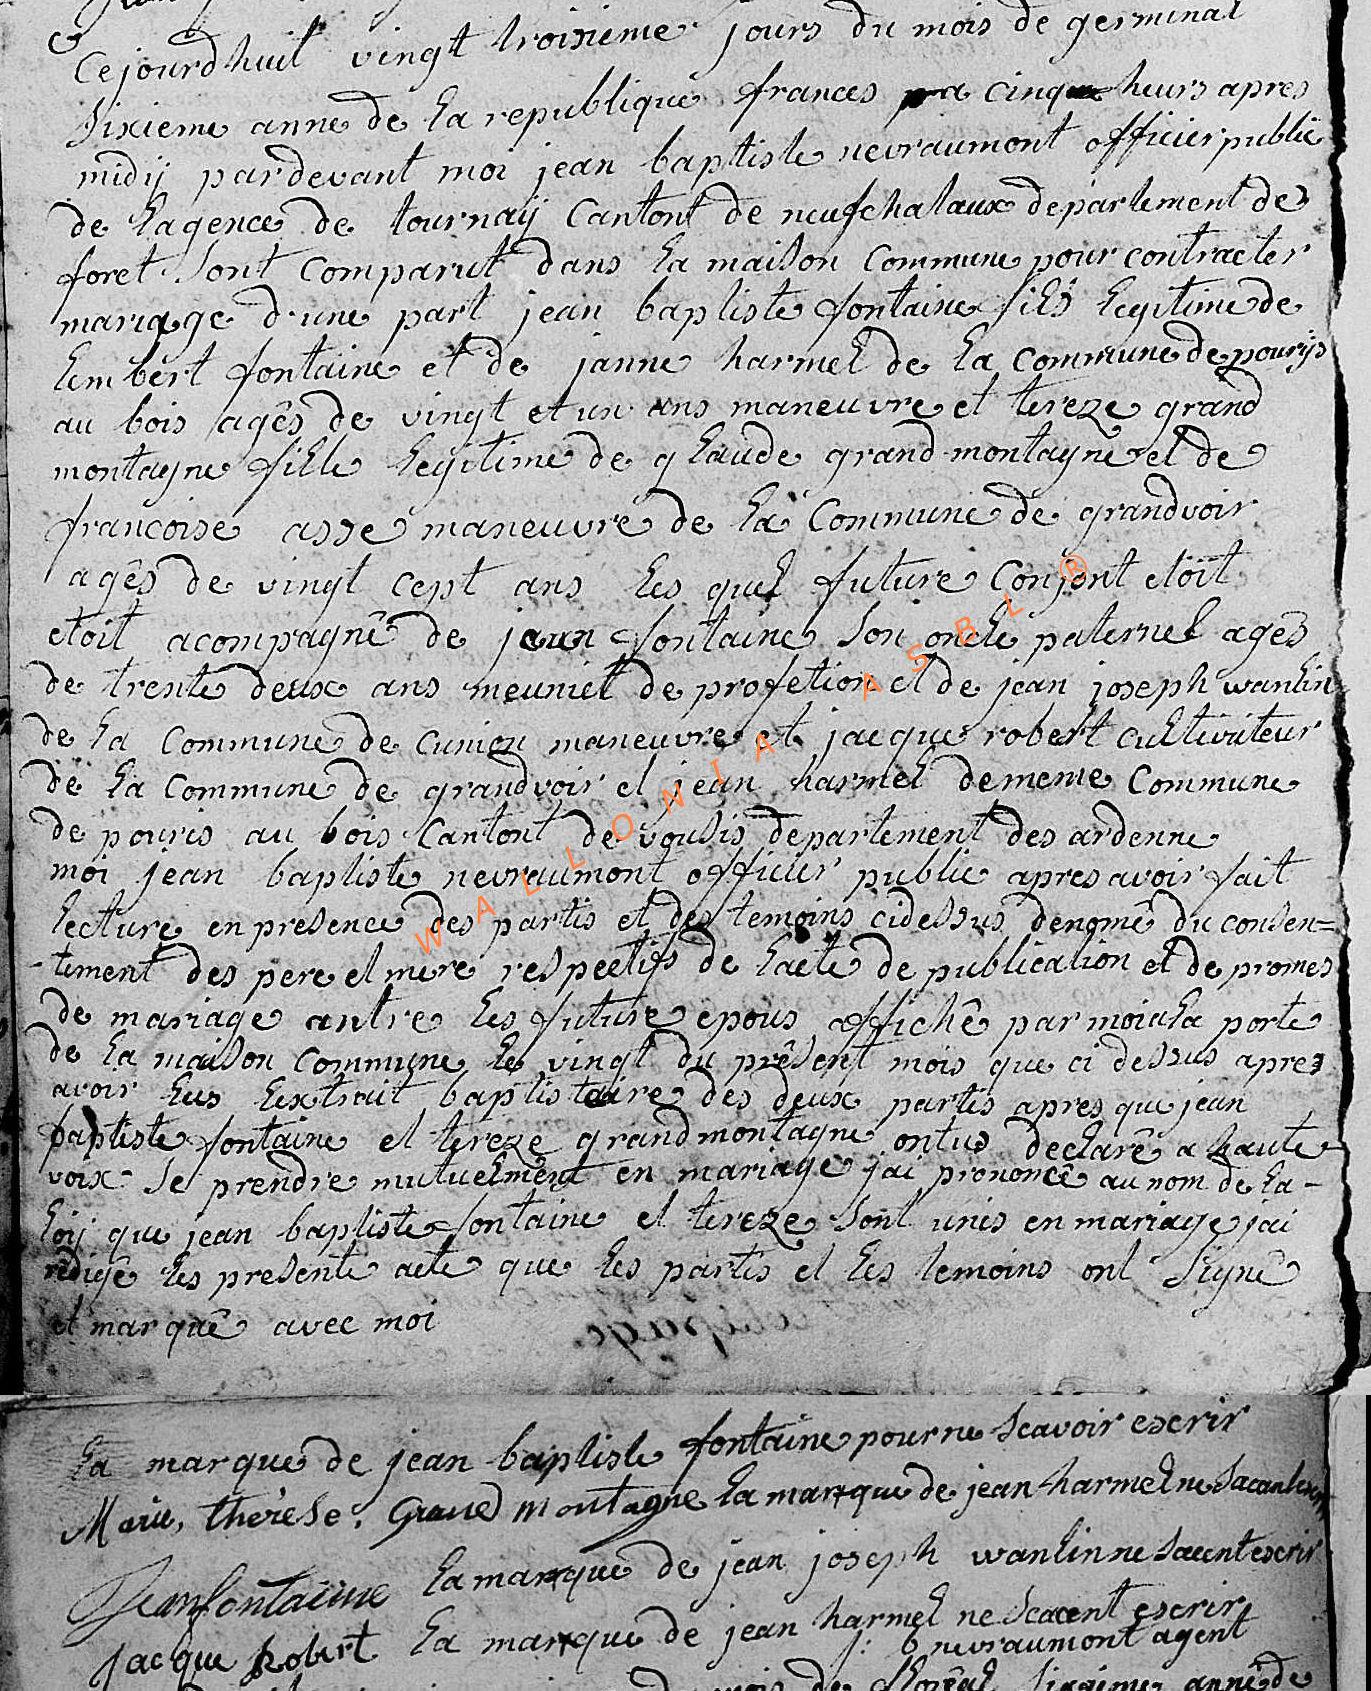 Cejourdhuit vingt troisieme jours du mois de germinal
sixieme anne de la republique frances a cinq heurs apres
midij pardevant moi jean baptiste nevraumont officier public
de lagence de tournaij Cantont de neufchataux departement de
foret sont comparut dans la maison commune pour contracter
mariage d'une part jean baptiste fontaine fils legitime de
lembert fontaine et de janne harmel de la commune de pourijs
au bois agês de vingt et un ans maneuvre et tereze grand
montagne fille legitime de glaude grand montagne et de
francoise asse maneuvre de la Commune de grandvoir
agês de vingt cept ans les quel future Conjont etoit
etoit acompagnê de jean fontaine son oncle paternel agês
de trente deux ans meuniet de profetion et de jean joseph wanlin
de la commune de cunion maneuvre et jacque robert cultivateur
de la commune de grandvoir et jean harmel de meme Commune
de pouris au bois Cantont de vousis departement des ardenne
moi jean baptiste nevraumont officier public apres avoir fait
lecture en presence des partis et des temoins cidessus denomê du consen=
-tement des pere et mere respectifs de lacte de publication et de promes
de mariage antre les future epous affichê par moi a la porte
de la maison commune le vingt du prêsent mois que ci dessus apres
avoir lus lextrait baptistaire des deux partis apres que jean
baptiste fontaine et tereze grandmontagne ontus declarê a haute
voix se prendre mutuelmênt en mariage jai prononcê au nom de la -
loij que jean baptiste fontaine et tereze sont unis en mariage jai
redigê les presente acte que les partis et les temoins ont signê
et marquê avec moi
WALLONIA ASBL ®
la marque de jean baptiste fontaine pour ne scavoir escrir
Marie, thérèse, Grand montagne la marque de jean harmel ne
Jean fontaine la marque de jean joseph wanlin ne sacent escrir
jacque Robert la marque de jean harmel ne scacent escrir
j: b nevraumont agent
mois de floreal sixieme anné de